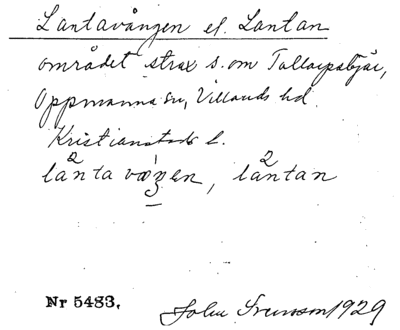 Lantavången el. Lantan
området strax s. om Tallarpabjär,
Oppmanna sn, Villands hd.
Kristianstads l.
lan²ta våŋen, lan²tan
Nr 5483.
John Svensson 1929